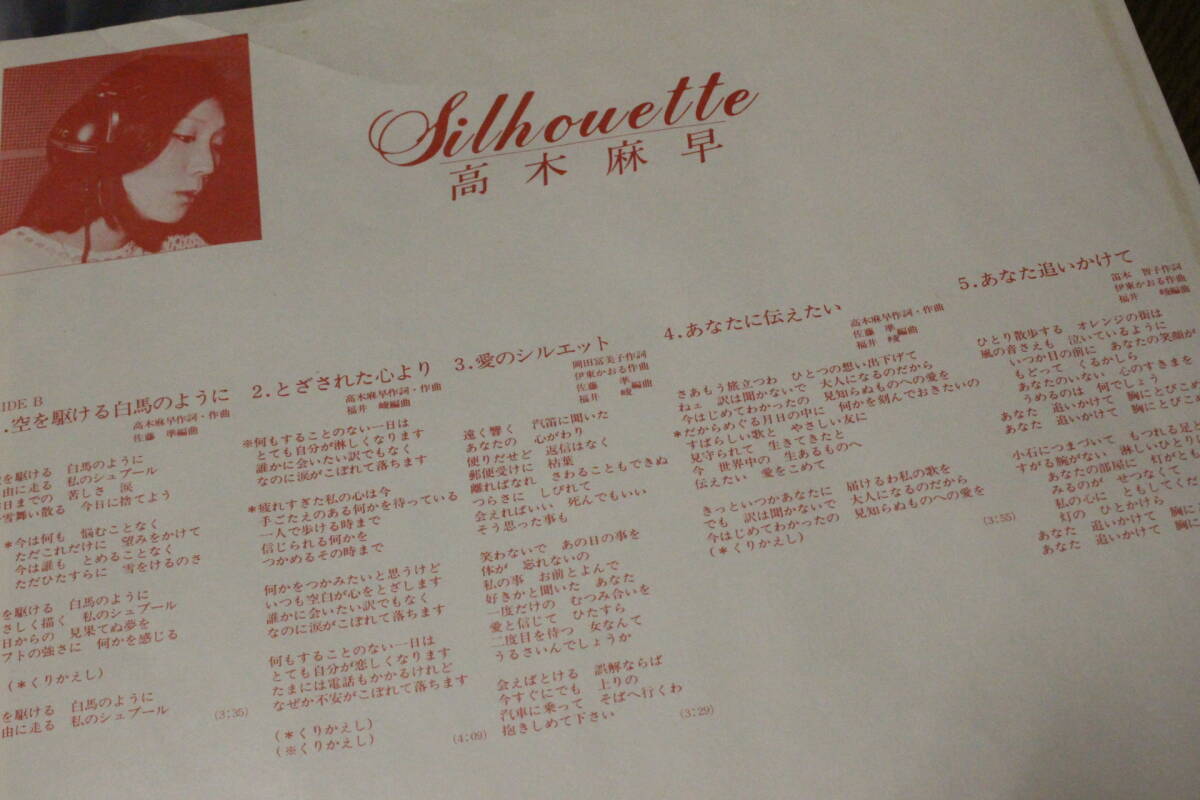 Silhouette
高木麻早
IDE B
.空を駆ける白馬のように
高木麻早作詞・作曲
佐藤 準編曲
を駆ける 白馬のように
由に走る 私のシュプール
日までの 苦しさ 涙
雪舞い散る 今日に捨てよう
*今は何も 悩むことなく
ただこれだけに 望みをかけて
今は誰も とめることなく
ただひたすらに 雪をけるのさ
を駆ける 白馬のように
さしく描く 私のシュプール
日からの 見果てぬ夢を
フトの強さに 何かを感じる
(*くりかえし)
を駆ける 白馬のように
由に走る 私のシュプール
(3:35)
2.とざされた心より
高木麻早作詞・作曲
福井 崚編曲
※何もすることのない一日は
とても自分が淋しくなります
誰かに会いたい訳でもなく
なのに涙がこぼれて落ちます
*疲れすぎた私の心は今
手ごたえのある何かを待っている
一人で歩ける時まで
信じられる何かを
つかめるその時まで
何かをつかみたいと思うけど
いつも空白が心をとざします
誰かに会いたい訳でもなく
なのに涙がこぼれて落ちます
何もすることのない一日は
とても自分が恋しくなります
たまには電話もかかるけれど
なぜか不安がこぼれて落ちます
(*くりかえし)
(※くりかえし)
(4:09)
3.愛のシルエット
岡田冨美子作詞
伊東かおる作曲
佐藤 準
福井 崚編曲
遠く響く 汽笛に聞いた
あなたの 心がわり
便りだせど 返信はなく
郵便受けに 枯葉
離ればなれ さわることもできぬ
つらさに しびれて
会えればいい 死んでもいい
そう思った事も
笑わないで あの日の事を
体が 忘れないの
私の事 お前とよんで
好きかと聞いた あなた
一度だけの むつみ合いを
愛と信じて ひたすら
二度目を待つ 女なんて
うるさいんでしょうか
会えばとける 誤解ならば
今すぐにでも 上りの
汽車に乗って そばへ行くわ
抱きしめて下さい
(3:29)
4.あなたに伝えたい
高木麻早作詞・作曲
佐藤 準
福井 崚編曲
さあもう旅立つわ ひとつの想い出下げて
ねェ 訳は聞かないで 大人になるのだから
今はじめてわかったの 見知らぬものへの愛を
*だからめぐる月日の中に 何かを刻んでおきたいの
すばらしい歌と やさしい友に
見守られて 生きてきたと
今 世界中の 生あるものへ
伝えたい 愛をこめて
きっといつかあなたに 届けるわ私の歌を
でも 訳は聞かないで 大人になるのだから
今はじめてわかったの 見知らぬものへの愛を
(*くりかえし)
(3:55)
5.あなた追いかけて
笛木 智子作詞
伊東かおる作曲
福井 崚編曲
ひとり散歩する オレンジの街は
風の音さえも 泣いているように
いつか目の前に あなたの笑顔が
もどって くるかしら
あなたのいない 心のすきまを
うめるのは 何でしょう
あなた 追いかけて 胸にとびこめ
あなた 追いかけて 胸にとびこめ
小石につまづいて もつれる足と
すがる腕がない 淋しいひとり
あなたの部屋に 灯がとも
みるのが せつなくて
私の心に ともしてくだ
灯の ひとかけら
あなた 追いかけて 胸に
あなた 追いかけて 胸に